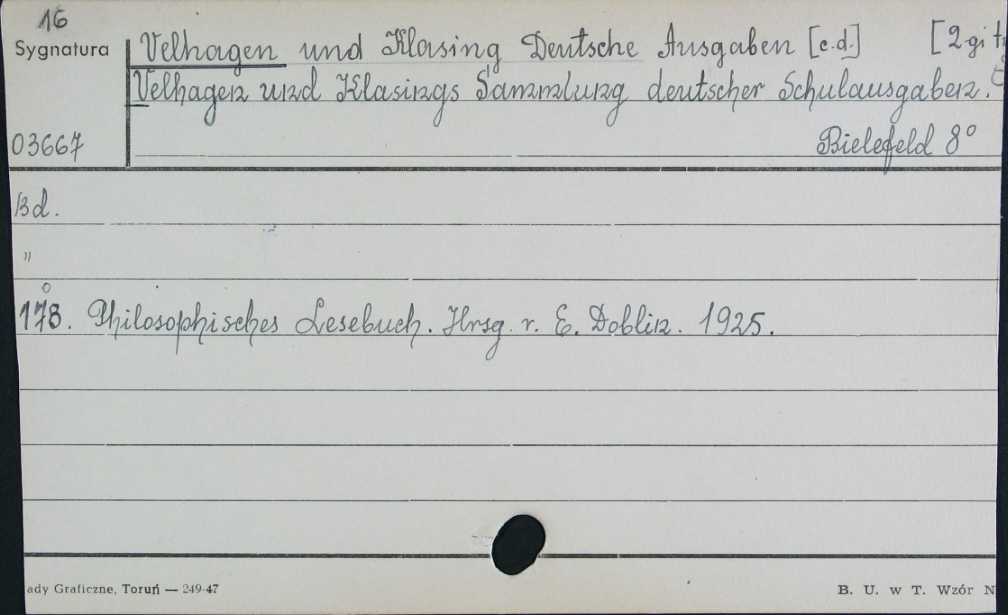 16
Sygnatura
Velhagen und Klasing Deutsche Ausgaben [c.d.] [2 gi
Velhagen und Klasings Sammlung deutscher Schulausgaben.
03667
Bielefeld 8°
Bd.
"
178. Philosophisches Lesebuch. Hrsg. v. E. Doblin. 1925.
ady Graficzne, Toruń — 249-47
B. U. w T. Wzór N